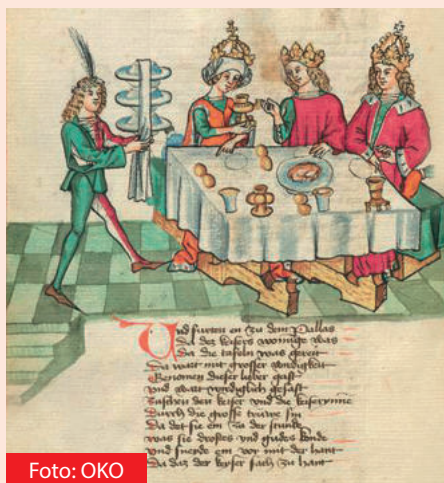 Und furten en zu dem Pallas
Da des keisers wonunge was
Da die tafeln was gereit
Da wart mit grosser wirdigkeit
Genomen dieser lieber gast
Und wart wirdiglich gesast
Zuschen den keiser und die keiserynne
Durch die grosse truwe sin
Da det sie em zu der stunde
was sie drostes und gudes konde
und snerde em vor mit der hant
Da daz der keyser sach zu hant
Foto: OKO